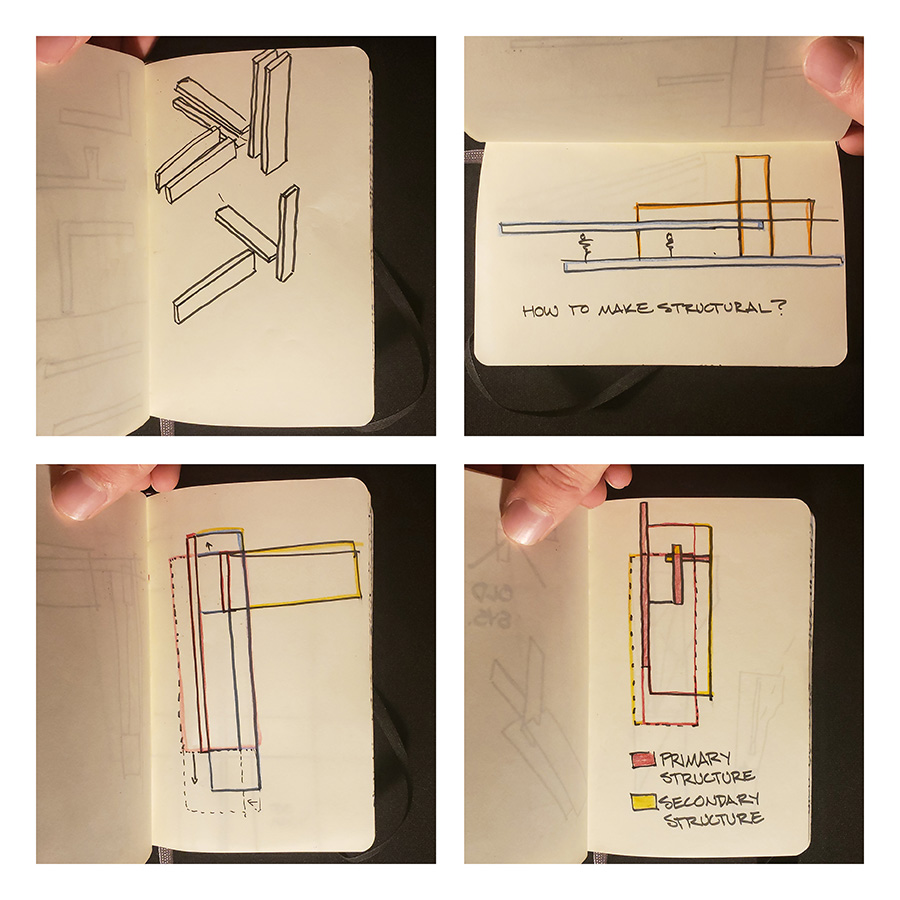 HOW TO MAKE STRUCTURAL?
PRIMARY
STRUCTURE
SECONDARY
STRUCTURE